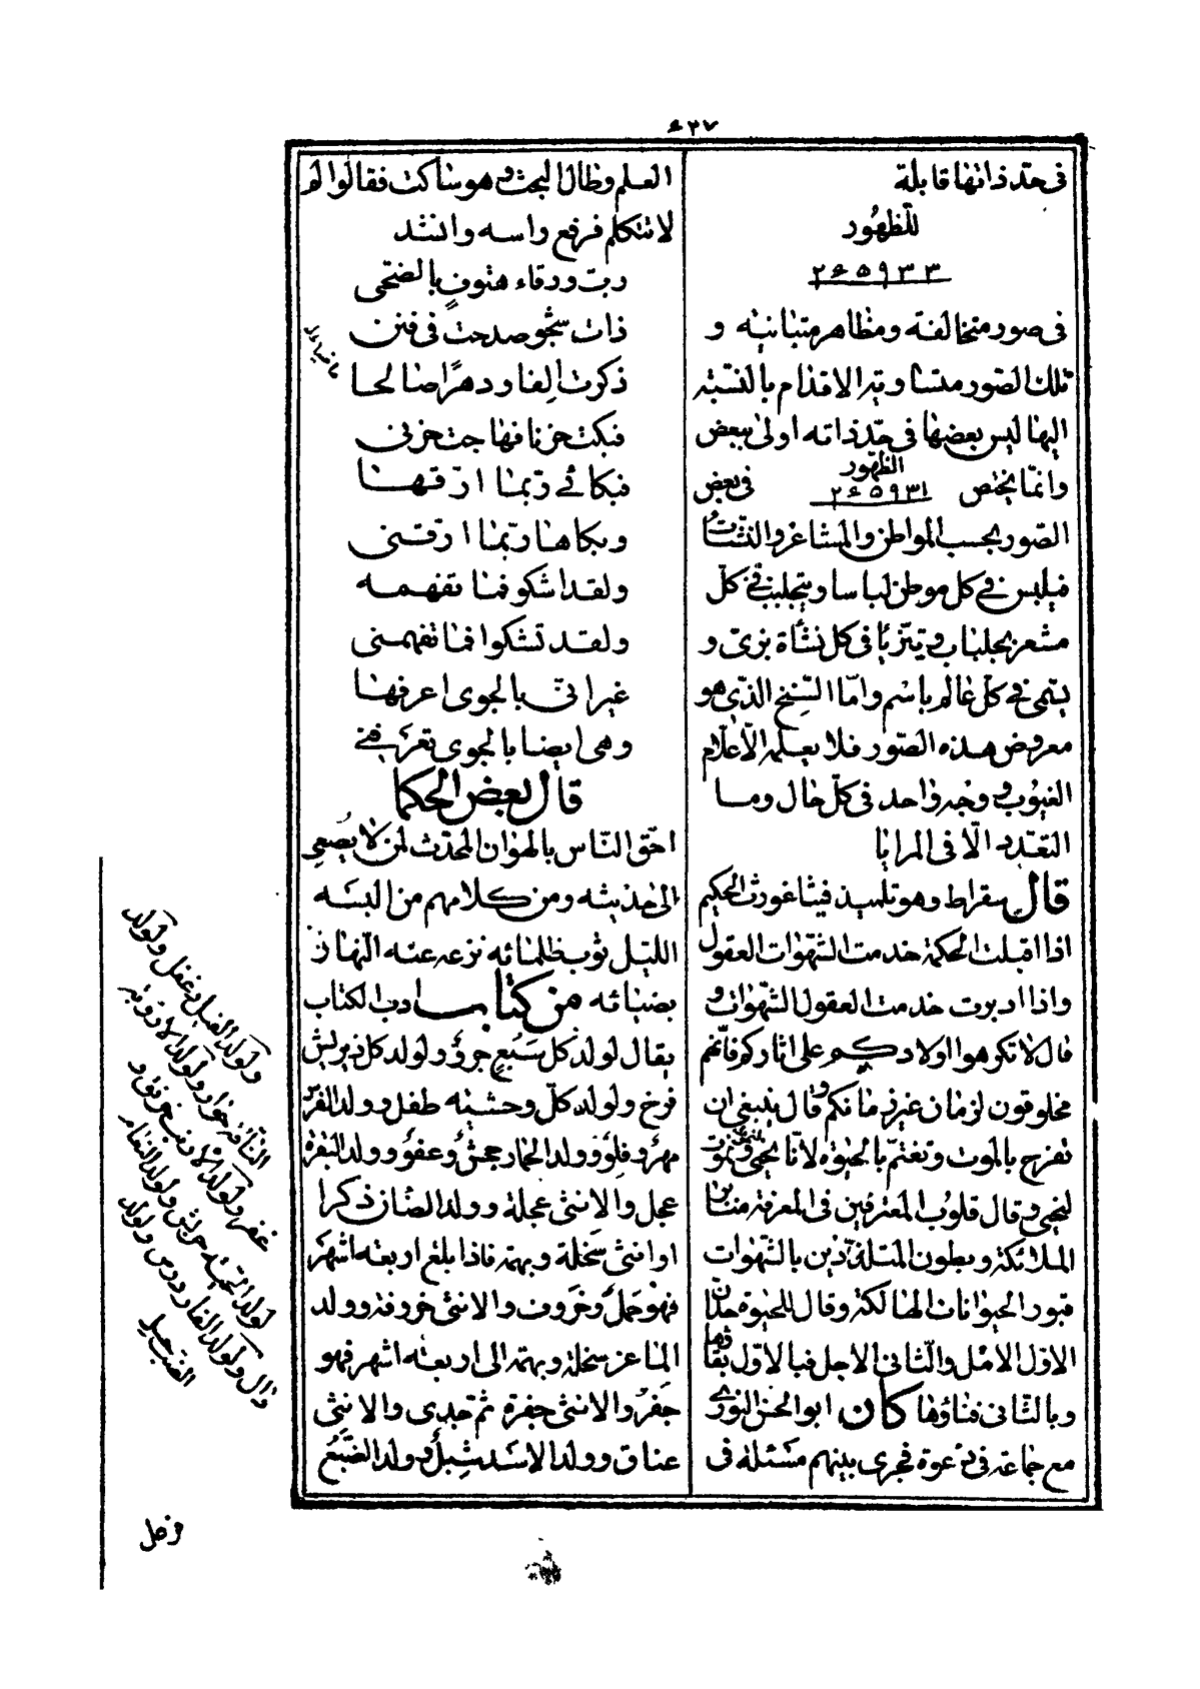 ٤٣٧
فى حدّ ذاتها قابلة
للظهُور
٢٤٥٩٣٣
فى صور متخالفة ومظاهر متباينة و
تلك الصّور متساوية الاقدام بالنّسبة
اليها ليس بعضها فى حدّ ذاته اولى ببعض
وانّما يختص الظهُور فى بعض
٢٤٥٩٣١
الصّور بحسب المواطن والمشاعر والنشئات
فيلبس فى كل موطن لباسا ويتجلبب فى كلّ
مشعر بجلباب ويتزيّا فى كل نشأة بزىّ و
يتسمّى فى كلّ عالم باسْم وامّا السّنخ الذّى هو
معروض هذه الصّور فلا يعلمه الّا علّام
الغيُوب وجه واحد فى كلّ حال وما
التعّدد الّا فى المرايا
قال سقراط وهو تلميذ فيثاغورث الحكيم
اذا اقبلت الحكمة خدمت الشّهوات العقول
واذا ادبرت خدمت العقول الشّهوات و
قال لا تكرهوا اولادكم على اثاركم فانّهم
مخلوقون لزمان غير زمانكم وقال ينبغى ان
تفرح بالموت وتغتمّ بالحيٰوة لانّا نحيى لنموت ونموت
لنحيى وقال قلوب المعترفين فى المعرفة منابر
الملائكة وبطون المتلذّذين بالشّهوات
قبور الحيوانات الهالكة وقال للحيٰوة حدّان
الاوّل الامل والثّانى الاجل فبالاوّل بقاؤها
وبالثّانى فناؤها كان ابو الحسن النورى
مع جماعة فى دعوة فجرى بينهم مسئلة فى
العلم وطال البحث وهو ساكت فقالوا له
لا تتكلم فرفع راسه وانشد
ربّ ورقاء هتوفٍ بالضّحى
ذات شجو صدحت فى فنن
ذكرت الفا ودهرًا صالحا
فبكت حزنا فهاجت حزنى
فبكائى ربّما ارّقها
وبكاها ربّما ارّقنى
ولقد اشكو فما تفهمه
ولقد تشكوا فما تفهمنى
غير انّى بالجوى اعرفها
وهى ايضا بالجوى تعرفنى
قال بعض الحكما
احقّ النّاس بالهوان المحدّث لمن لا يُصغى
الى حديثه ومن كلامهم من البسه
الليل ثوب ظلمائه نزعه عنه النّهار
بضيائه من كتاب ادب الكتاب
يقال لولد كل سَبُعٍ جروٌ ولولد كل ذى ريش
فرخ ولولد كلّ وحشيّة طفل وولد الفرس
مهر وفلوٌ وولد الحمار جحش وعفوٌ وولد البقرة
عجل والانثى عجلة وولد الضّان ذكرا
او انثى سَخلة وبهمة فاذا بلغ اربعة اشهر
فهو حَملٌ وخَروف والانثى خروفة وولد
الماعز سخلة وبهمة الى اربعة اشهر فهو
جَفرٌ والانثى جفرة ثمّ جدى والانثى
عناق وولد الاسد شِبلٌ وولد الضّبُع
ولولد الفيل دغفل ولولد
النّاقة حُوار ولولد الاروية
غفر ولولد الارنب خرنق و
لولد الحيّة حربش ولولد النّعام
رال ولولد الفار درص ولولد
الضّب حسل
فرعل